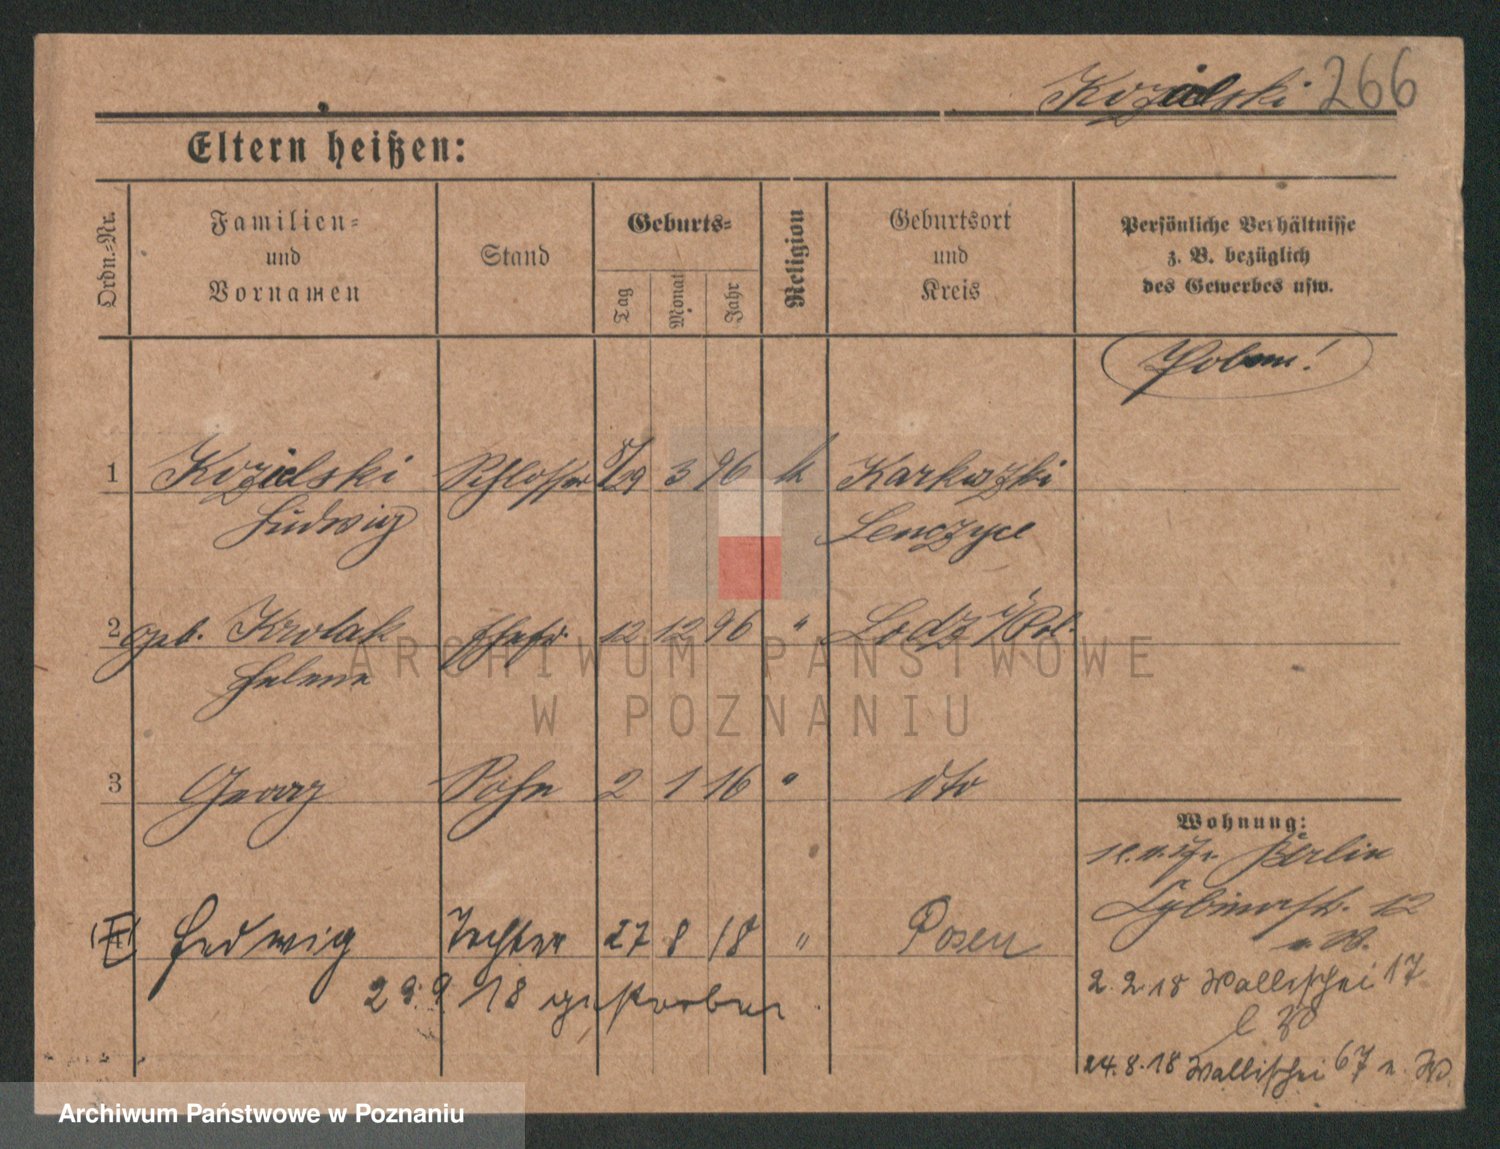 Kozielski 266
Eltern heißen:
Ordn.-Nr.
Familien-
und
Vornamen
Stand
Geburts-
Tag
Monat
Jahr
Religion
Geburtsort
und
Kreis
Persönliche Verhältnisse
z. B. bezüglich
des Gewerbes usw.
Polen!
1 Kozielski Schlosser 3 96 k
Ludwig Lenczyce
2 geb. Krolak Ehefr. 12 12 96 " Lodz i/Pol.
Helene
3 Georg Sohn 2 1 16 " dto
Wohnung:
Berlin
12
(4) Hedwig Tochter 27 8 18 " Posen
29.9.18 gestorben.
2.2.18 Wallischei 17
24.8.18 Wallischei 67 n. W.
ARCHIWUM PAŃSTWOWE
W POZNANIU
Archiwum Państwowe w Poznaniu